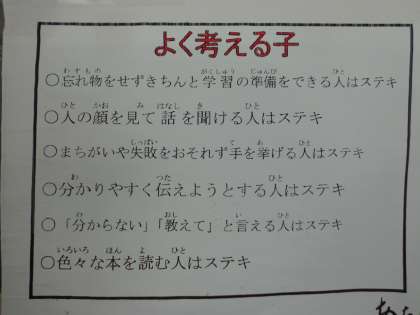 よく考える子
○忘れ物をせずきちんと学習の準備をできる人はステキ
○人の顔を見て話を聞ける人はステキ
○まちがいや失敗をおそれず手を挙げる人はステキ
○分かりやすく伝えようとする人はステキ
○「分からない」「教えて」と言える人はステキ
○色々な本を読む人はステキ